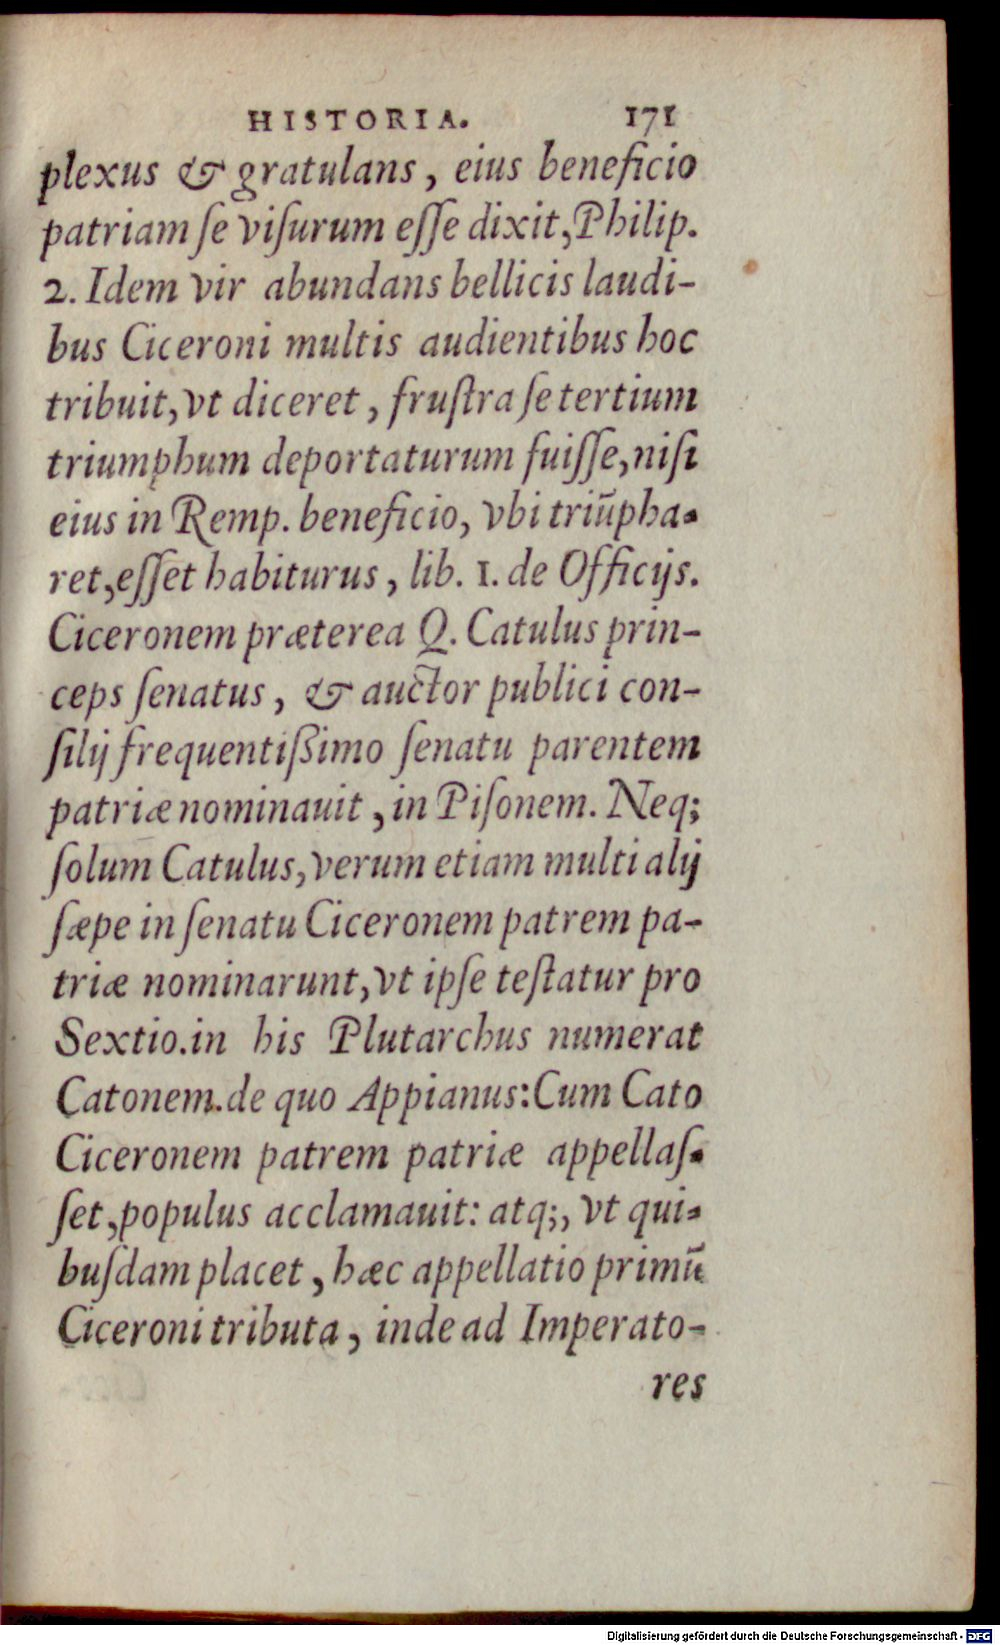 HISTORIA. 171
plexus & gratulans, eius beneficio
patriam ſe viſurum eſſe dixit, Philip.
2. Idem vir abundans bellicis laudi-
bus Ciceroni multis audientibus hoc
tribuit, vt diceret, fruſtra ſe tertium
triumphum deportaturum fuiſſe, niſi
eius in Remp. beneficio, vbi triūpha-
ret, eſſet habiturus, lib. 1. de Officijs.
Ciceronem præterea Q. Catulus prin-
ceps ſenatus, & auctor publici con-
ſilij frequentiſſimo ſenatu parentem
patriæ nominauit, in Piſonem. Neq;
ſolum Catulus, verum etiam multi alij
ſæpe in ſenatu Ciceronem patrem pa-
triæ nominarunt, vt ipſe teſtatur pro
Sextio. in his Plutarchus numerat
Catonem. de quo Appianus: Cum Cato
Ciceronem patrem patriæ appellaſ-
ſet, populus acclamauit: atq;, vt qui-
buſdam placet, hæc appellatio primū
Ciceroni tributa, inde ad Imperato-
res
Digitalisierung gefördert durch die Deutsche Forschungsgemeinschaft - DFG